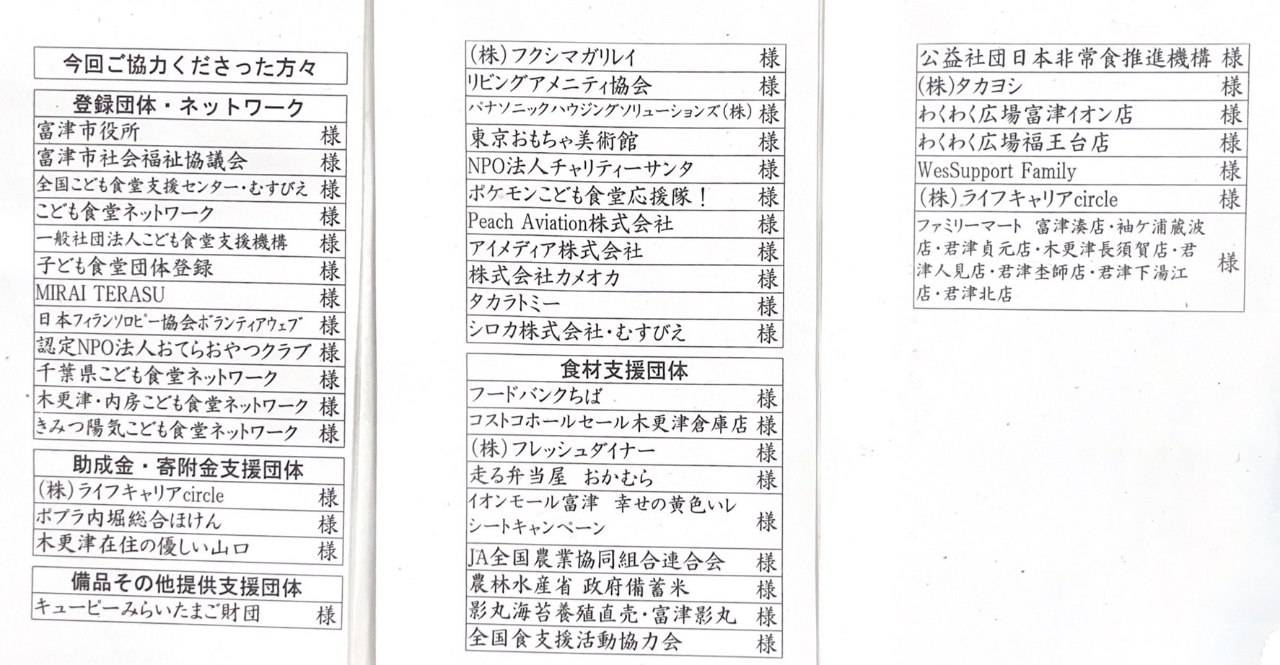 今回ご協力くださった方々
登録団体・ネットワーク
富津市役所 様
富津市社会福祉協議会 様
全国こども食堂支援センター・むすびえ 様
こども食堂ネットワーク 様
一般社団法人こども食堂支援機構 様
子ども食堂団体登録 様
MIRAI TERASU 様
日本フィランソロピー協会ボランティアウェブ 様
認定NPO法人おてらおやつクラブ 様
千葉県こども食堂ネットワーク 様
木更津・内房こども食堂ネットワーク 様
きみつ陽気こども食堂ネットワーク 様
助成金・寄附金支援団体
(株)ライフキャリアcircle 様
ポプラ内堀総合ほけん 様
木更津在住の優しい山口 様
備品その他提供支援団体
キューピーみらいたまご財団 様
(株)フクシマガリレイ 様
リビングアメニティ協会 様
パナソニックハウジングソリューションズ(株) 様
東京おもちゃ美術館 様
NPO法人チャリティーサンタ 様
ポケモンこども食堂応援隊! 様
Peach Aviation株式会社 様
アイメディア株式会社 様
株式会社カメオカ 様
タカラトミー 様
シロカ株式会社・むすびえ 様
食材支援団体
フードバンクちば 様
コストコホールセール木更津倉庫店 様
(株)フレッシュダイナー 様
走る弁当屋 おかむら 様
イオンモール富津 幸せの黄色いレ
シートキャンペーン 様
JA全国農業協同組合連合会 様
農林水産省 政府備蓄米 様
影丸海苔養殖直売・富津影丸 様
全国食支援活動協力会 様
公益社団日本非常食推進機構 様
(株)タカヨシ 様
わくわく広場富津イオン店 様
わくわく広場福王台店 様
WesSupport Family 様
(株)ライフキャリアcircle 様
ファミリーマート 富津湊店・袖ケ浦蔵波
店・君津貞元店・木更津長須賀店・君
津人見店・君津杢師店・君津下湯江
店・君津北店 様